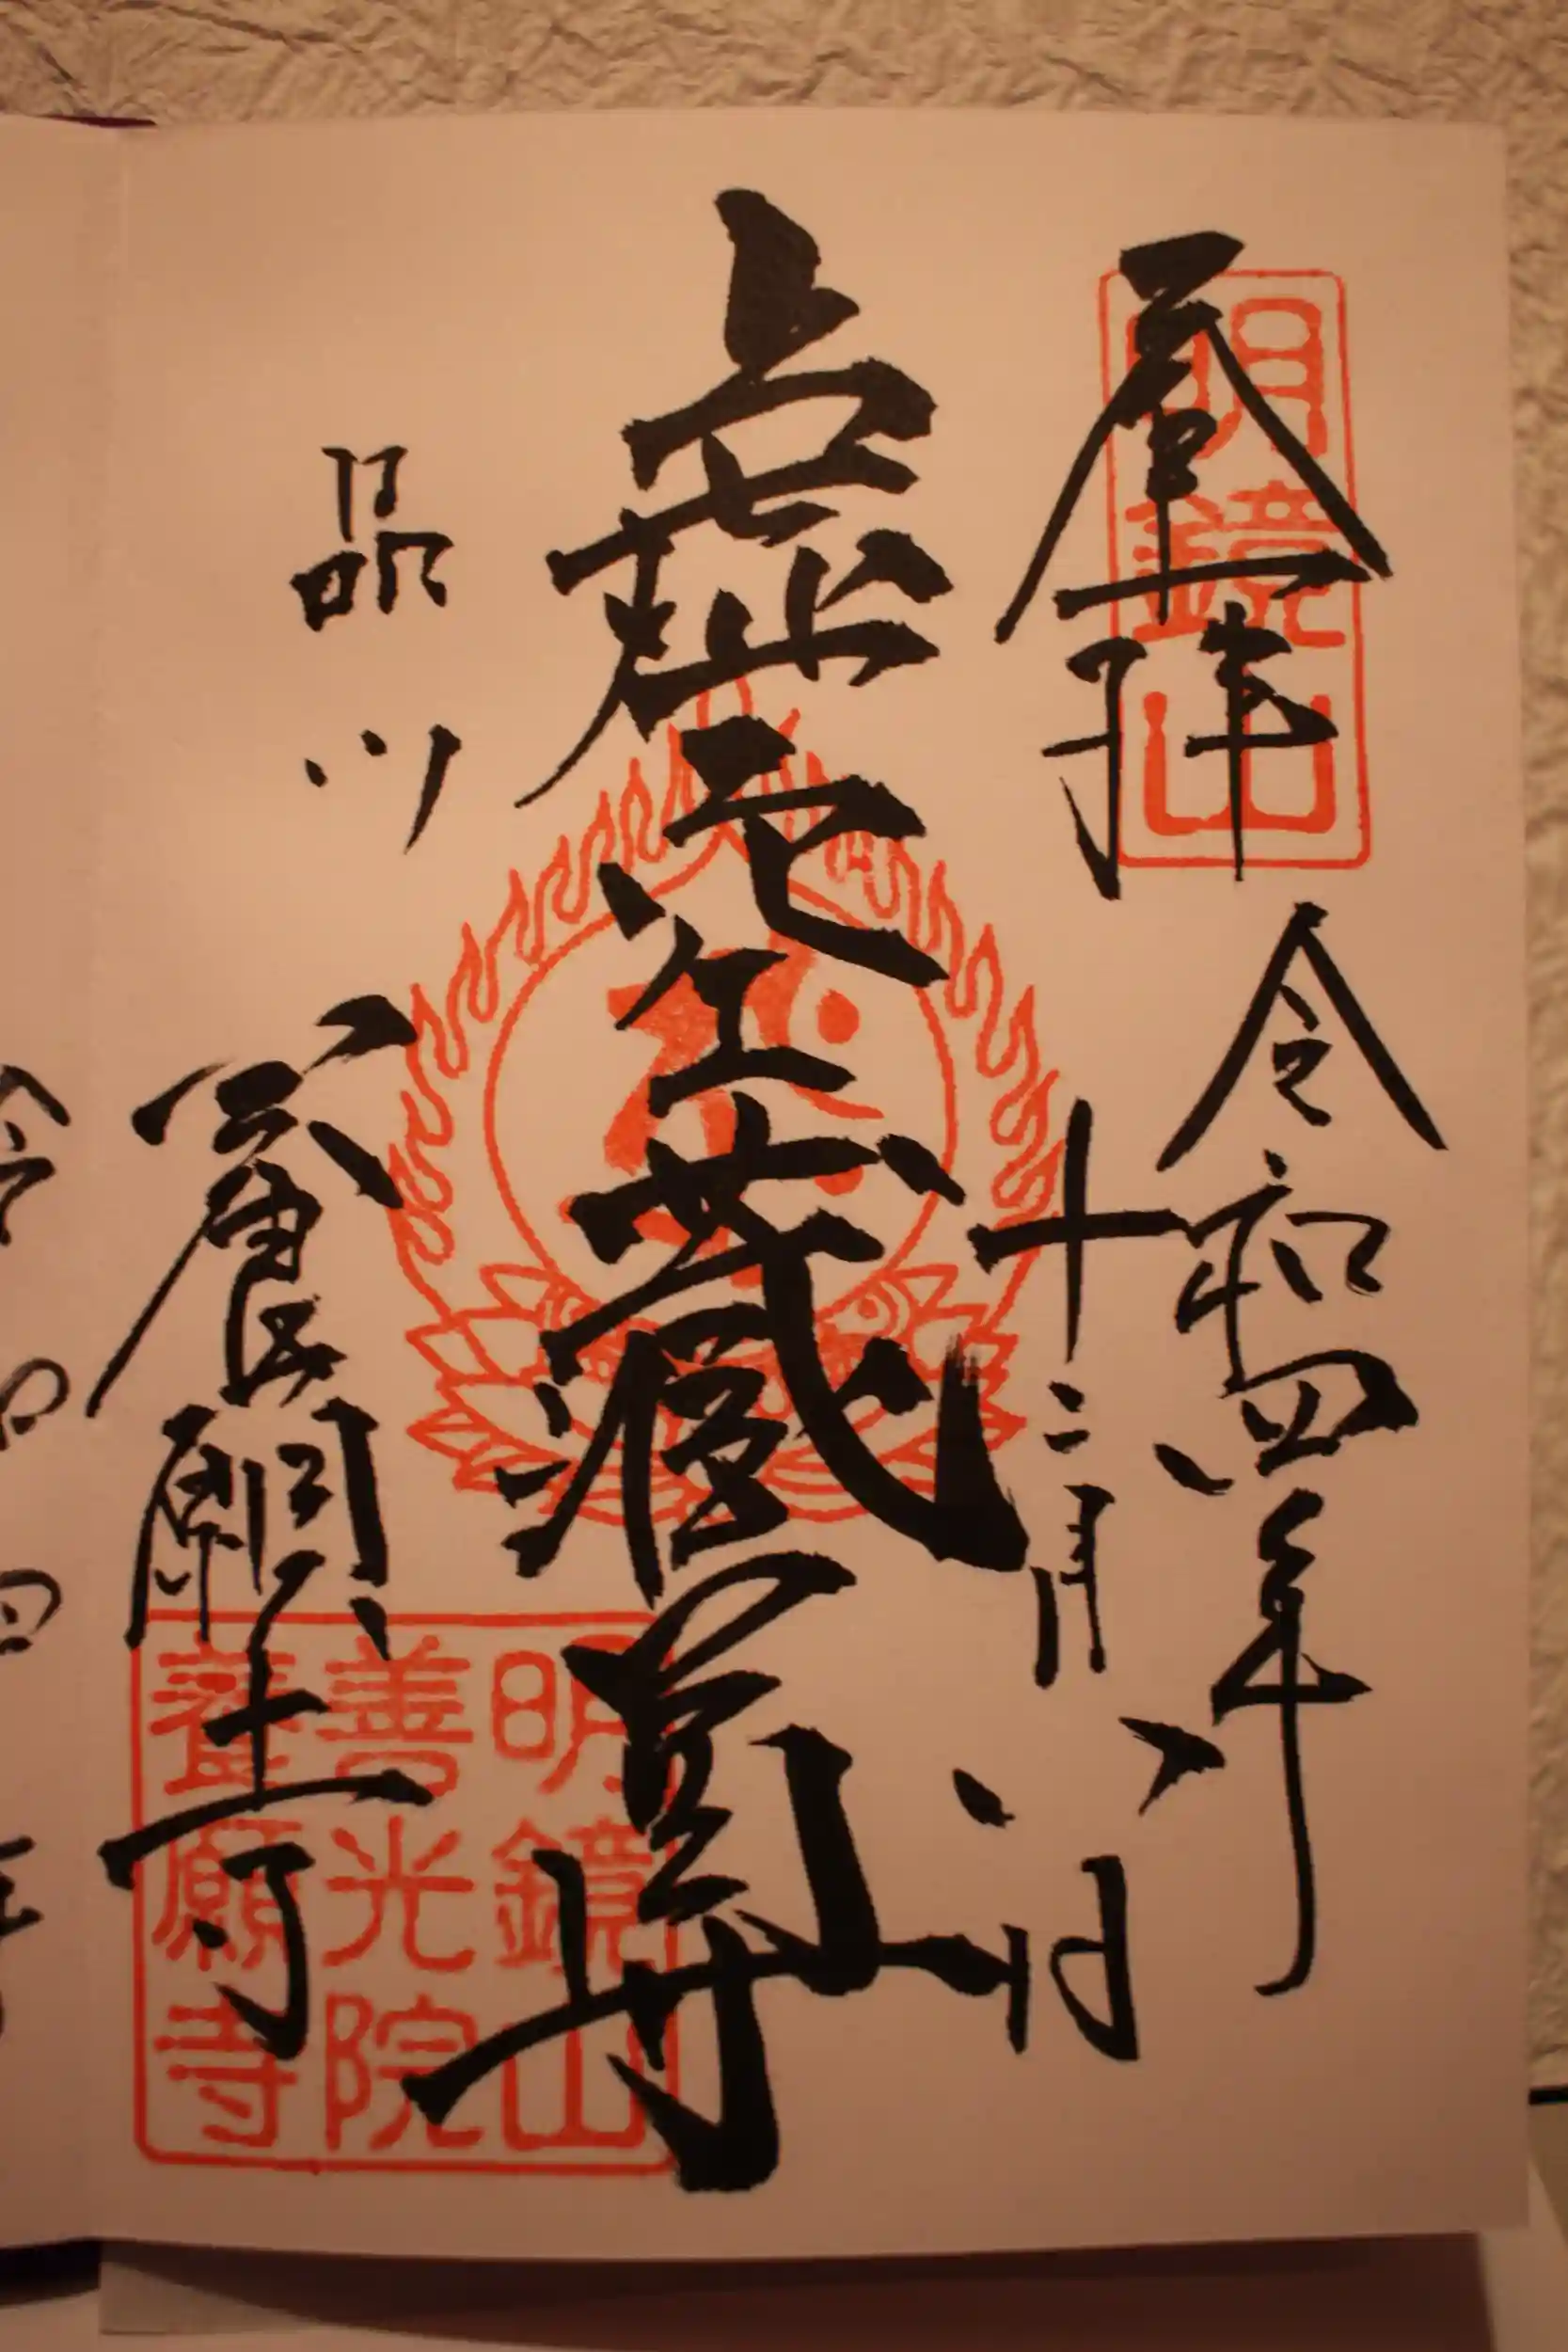 奉拝
令和四年
十二月八日
虚空蔵尊
品川
養願寺
明鏡山
明鏡山
善光院
養願寺